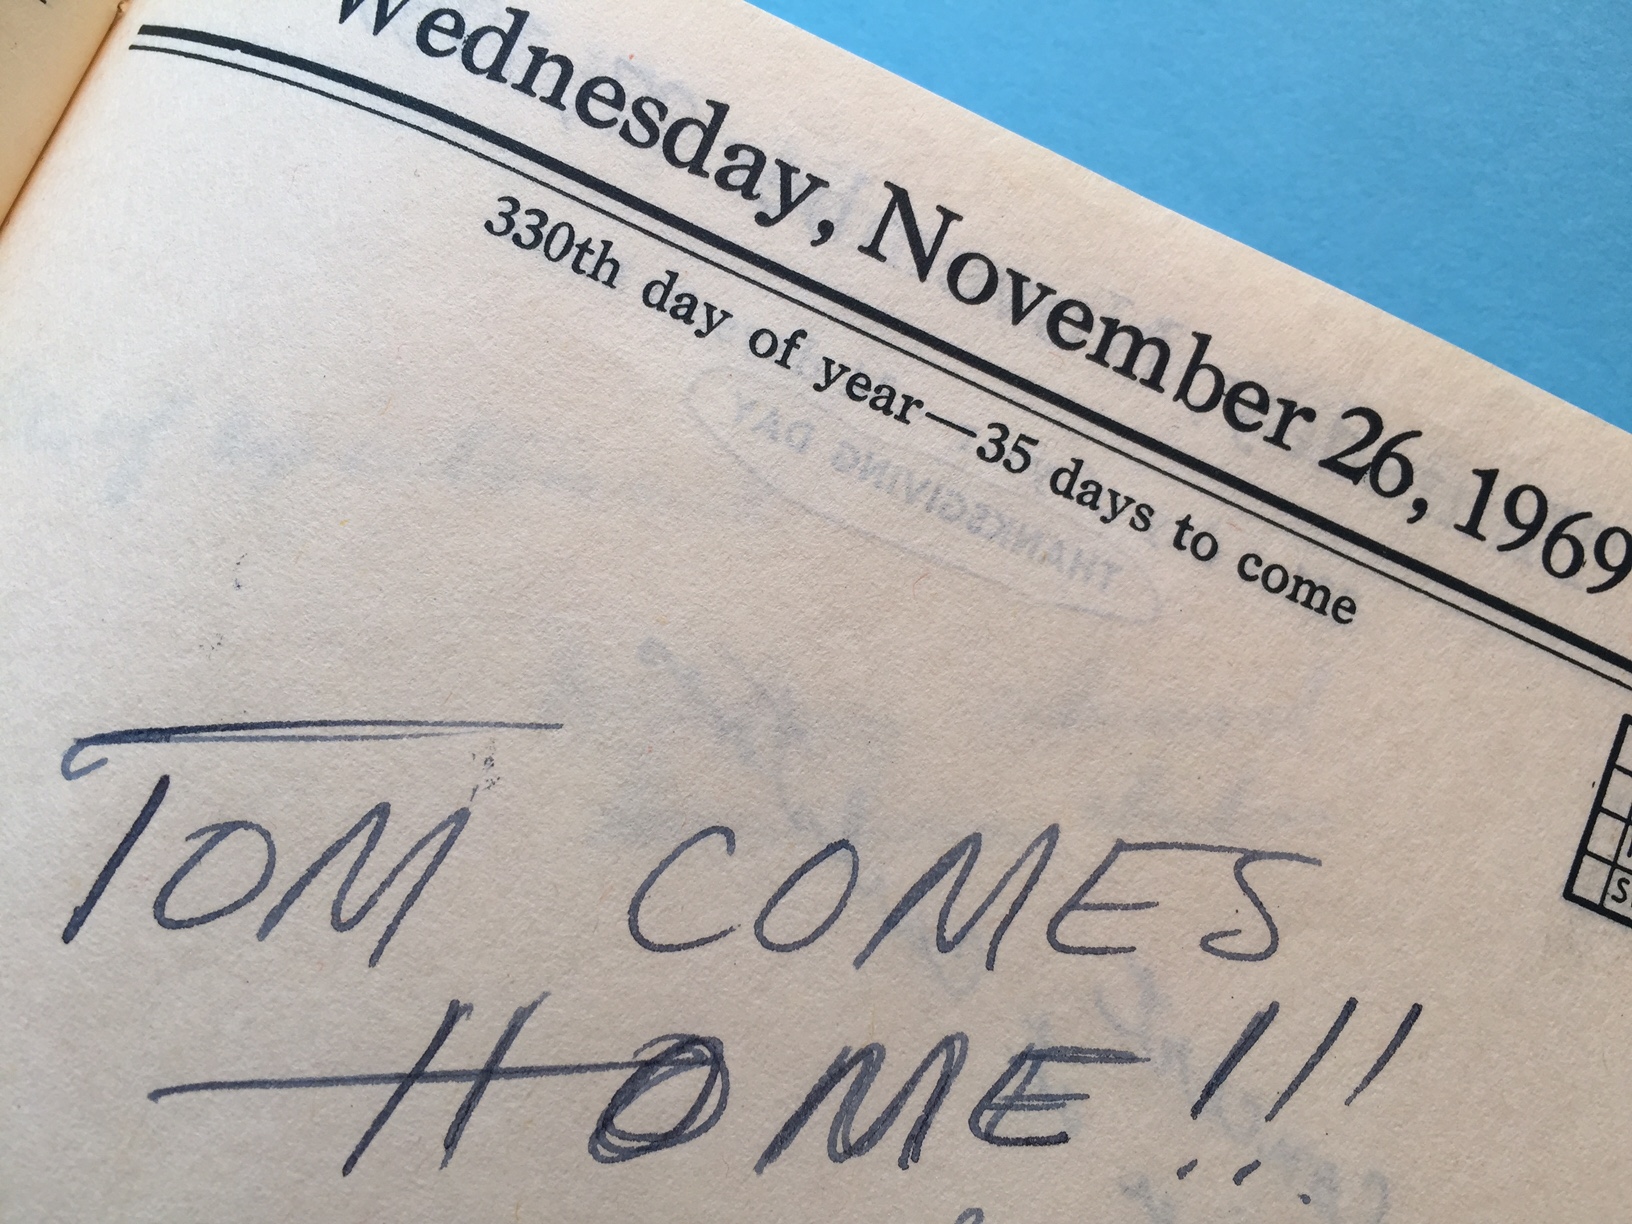 Wednesday, November 26, 1969
330th day of year—35 days to come
THANKSGIVING DAY
TOM COMES
HOME!!!